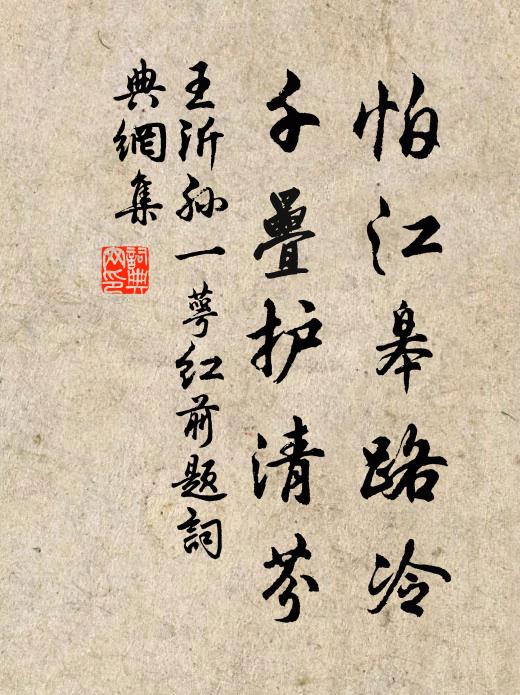 怕江皋路冷
千疊护清芬
王沂孙一萼红前题詞
典網集
詞典